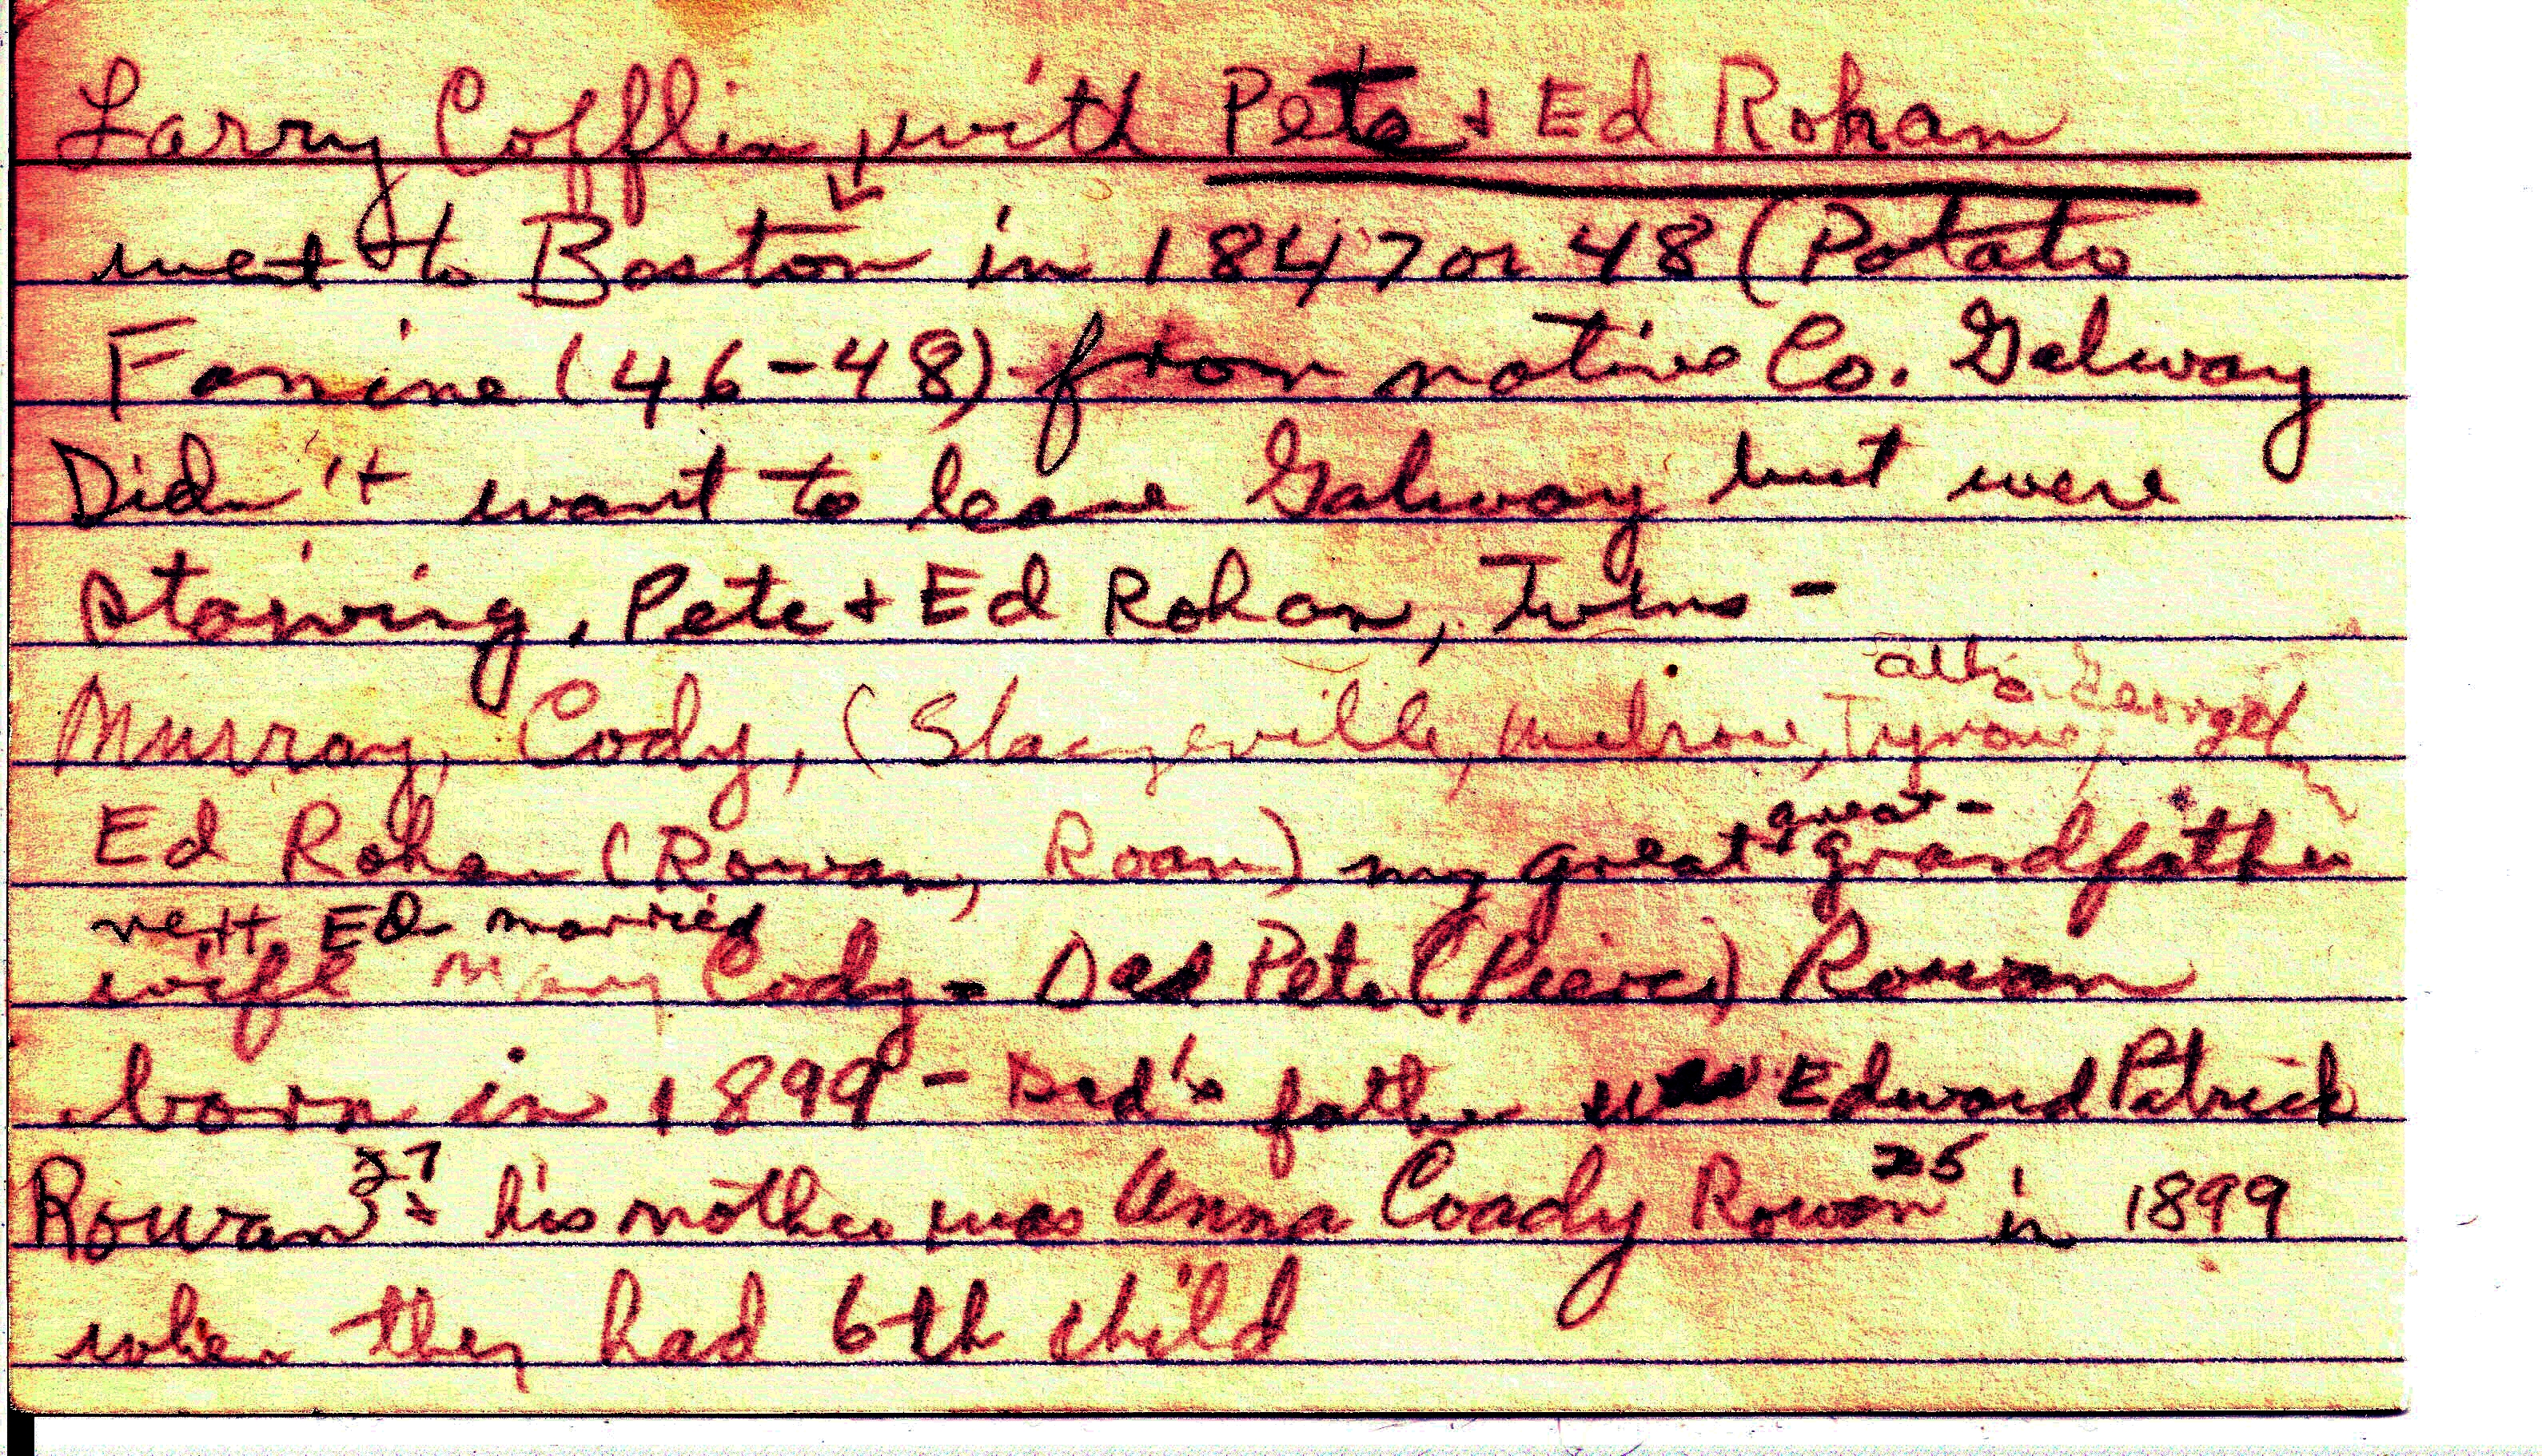 Larry Cofflin, with Pete + Ed Rohan
went to Boston in 1847 or 48 (Potato
Famine (46-48) from native Co. Galway
Didn't want to leave Galway but were
starving. Pete + Ed Rohan, Twins -
also George
Murray, Cody, (Slaugeville, Melrose, Tyrone,
great-
Ed Rohan (Rowan, Roan) my great grandfather
next Ed married
wife Mary Cody - Dad Pete (Pierce) Rowan
born in 1899 - Dad's father was Edward Patrick
27 25
Rowan - his mother was Anna Coady Rowan in 1899
when they had 6th child